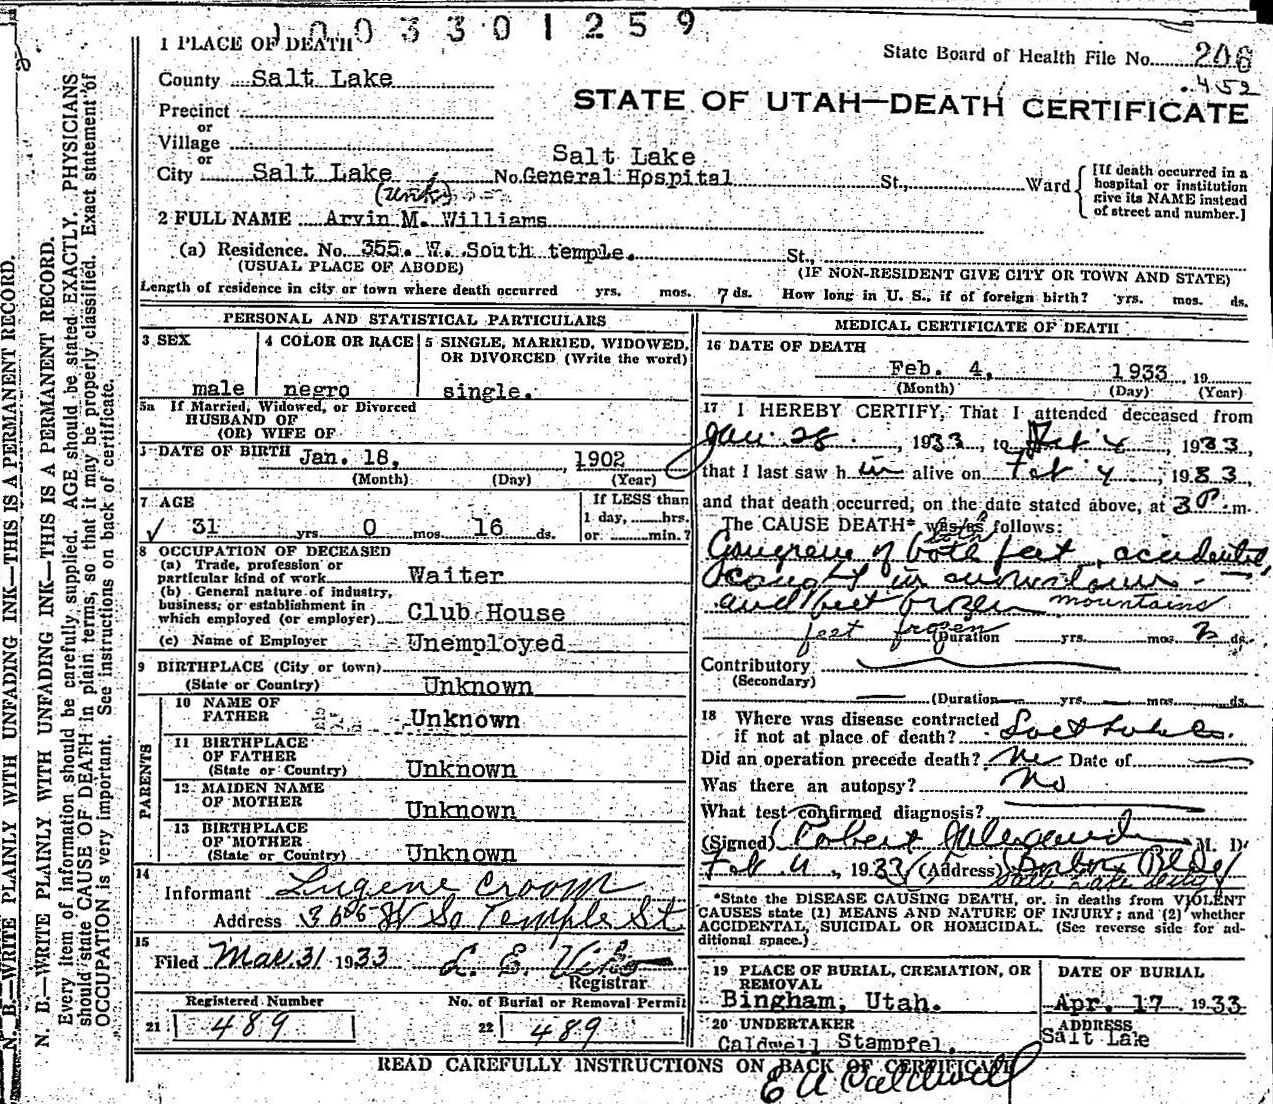 0033 01259
State Board of Health File No. 206
.452
STATE OF UTAH—DEATH CERTIFICATE
1 PLACE OF DEATH
County Salt Lake
Precinct
or
Village
or
City Salt Lake No. Salt Lake General Hospital St., Ward
[If death occurred in a hospital or institution give its NAME instead of street and number.]
(Unk)
2 FULL NAME Arvin M. Williams
(a) Residence. No. 355. W. South temple. St.,
(USUAL PLACE OF ABODE) (IF NON-RESIDENT GIVE CITY OR TOWN AND STATE)
Length of residence in city or town where death occurred yrs. mos. 7 ds. How long in U. S., if of foreign birth? yrs. mos. ds.
PERSONAL AND STATISTICAL PARTICULARS
3 SEX male
4 COLOR OR RACE negro
5 SINGLE, MARRIED, WIDOWED, OR DIVORCED (Write the word) single.
5a If Married, Widowed, or Divorced
HUSBAND OF
(OR) WIFE OF
DATE OF BIRTH Jan. 18, 1902
(Month) (Day) (Year)
7 AGE 31 yrs. 0 mos. 16 ds.
If LESS than
1 day, hrs.
or min.?
8 OCCUPATION OF DECEASED
(a) Trade, profession or
particular kind of work Waiter
(b) General nature of industry,
business, or establishment in
which employed (or employer) Club House
(c) Name of Employer Unemployed
9 BIRTHPLACE (City or town)
(State or Country) Unknown
PARENTS
10 NAME OF
FATHER Unknown
11 BIRTHPLACE
OF FATHER
(State or Country) Unknown
12 MAIDEN NAME
OF MOTHER Unknown
13 BIRTHPLACE
OF MOTHER
(State or Country) Unknown
14
Informant Eugene Croom
Address 355 W So Temple St.
15
Filed Mar. 31 1933 L. E.
Registrar
Registered Number
21 489
No. of Burial or Removal Permit
22 489
MEDICAL CERTIFICATE OF DEATH
16 DATE OF DEATH
Feb. 4, 1933 19
(Month) (Day) (Year)
17 I HEREBY CERTIFY, That I attended deceased from
Jan. 28, 1933, to Feb 4, 1933,
that I last saw him alive on Feb 4, 1933,
and that death occurred, on the date stated above, at 3 P.m.
The CAUSE DEATH* was as follows:
both
Gangrene of both feet, accidental,
caught in mountains
and feet frozen mountains
feet frozen
(Duration yrs. mos. ds.
Contributory
(Secondary)
(Duration yrs. mos. ds.
18 Where was disease contracted
if not at place of death? Salt Lake Co.
Did an operation precede death? No Date of
Was there an autopsy? No
What test confirmed diagnosis?
(Signed) Robert Alexander M. D.
Feb 4, 1933 (Address) Boston Bldg
Salt Lake City
*State the DISEASE CAUSING DEATH, or, in deaths from VIOLENT
CAUSES state (1) MEANS AND NATURE OF INJURY; and (2) whether
ACCIDENTAL, SUICIDAL OR HOMICIDAL. (See reverse side for ad-
ditional space.)
19 PLACE OF BURIAL, CREMATION, OR
REMOVAL
Bingham, Utah.
DATE OF BURIAL
Apr. 17 1933
20 UNDERTAKER
Caldwell Stampfel.
ADDRESS
Salt Lake
READ CAREFULLY INSTRUCTIONS ON BACK OF CERTIFICATE
E A Caldwell
N. B.—WRITE PLAINLY WITH UNFADING INK—THIS IS A PERMANENT RECORD.
N. B.—WRITE PLAINLY WITH UNFADING INK—THIS IS A PERMANENT RECORD.
Every item of information should be carefully supplied. AGE should be stated EXACTLY. PHYSICIANS
should state CAUSE OF DEATH in plain terms, so that it may be properly classified. Exact statement of
OCCUPATION is very important. See instructions on back of certificate.